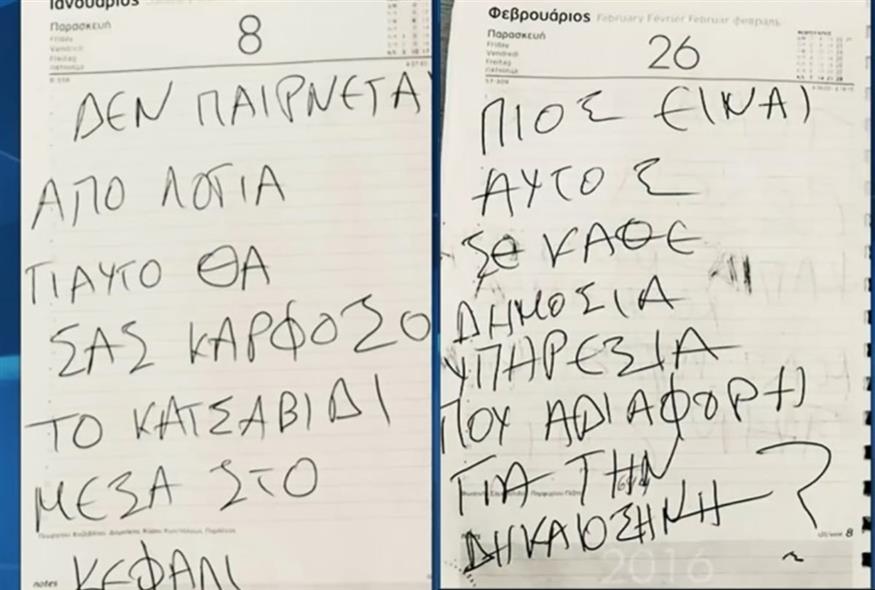 Ιανουάριος
Παρασκευή
Friday
Vendredi
Freitag
пятница
8
ΔΕΝ ΠΑΙΡΝΕΤΑΙ
ΑΠΟ ΛΟΓΙΑ
ΓΙΑΥΤΟ ΘΑ
ΣΑΣ ΚΑΡΦΟΣΟ
ΤΟ ΚΑΤΣΑΒΙΔΙ
ΜΕΣΑ ΣΤΟ
ΚΕΦΑΛΙ
notes
Φεβρουάριος February Février Februar февраль
Παρασκευή
Friday
Vendredi
Freitag
пятница
26
ΠΙΟΣ ΕΙΝΑΙ
ΑΥΤΟΣ
ΣΕ ΚΑΘΕ
ΔΗΜΟΣΙΑ
ΥΠΗΡΕΣΙΑ
ΠΟΥ ΑΔΙΑΦΟΡΗ
ΓΙΑ ΤΗΝ
ΔΗΚΑΙΟΣΗΝΗ ?
8
2016